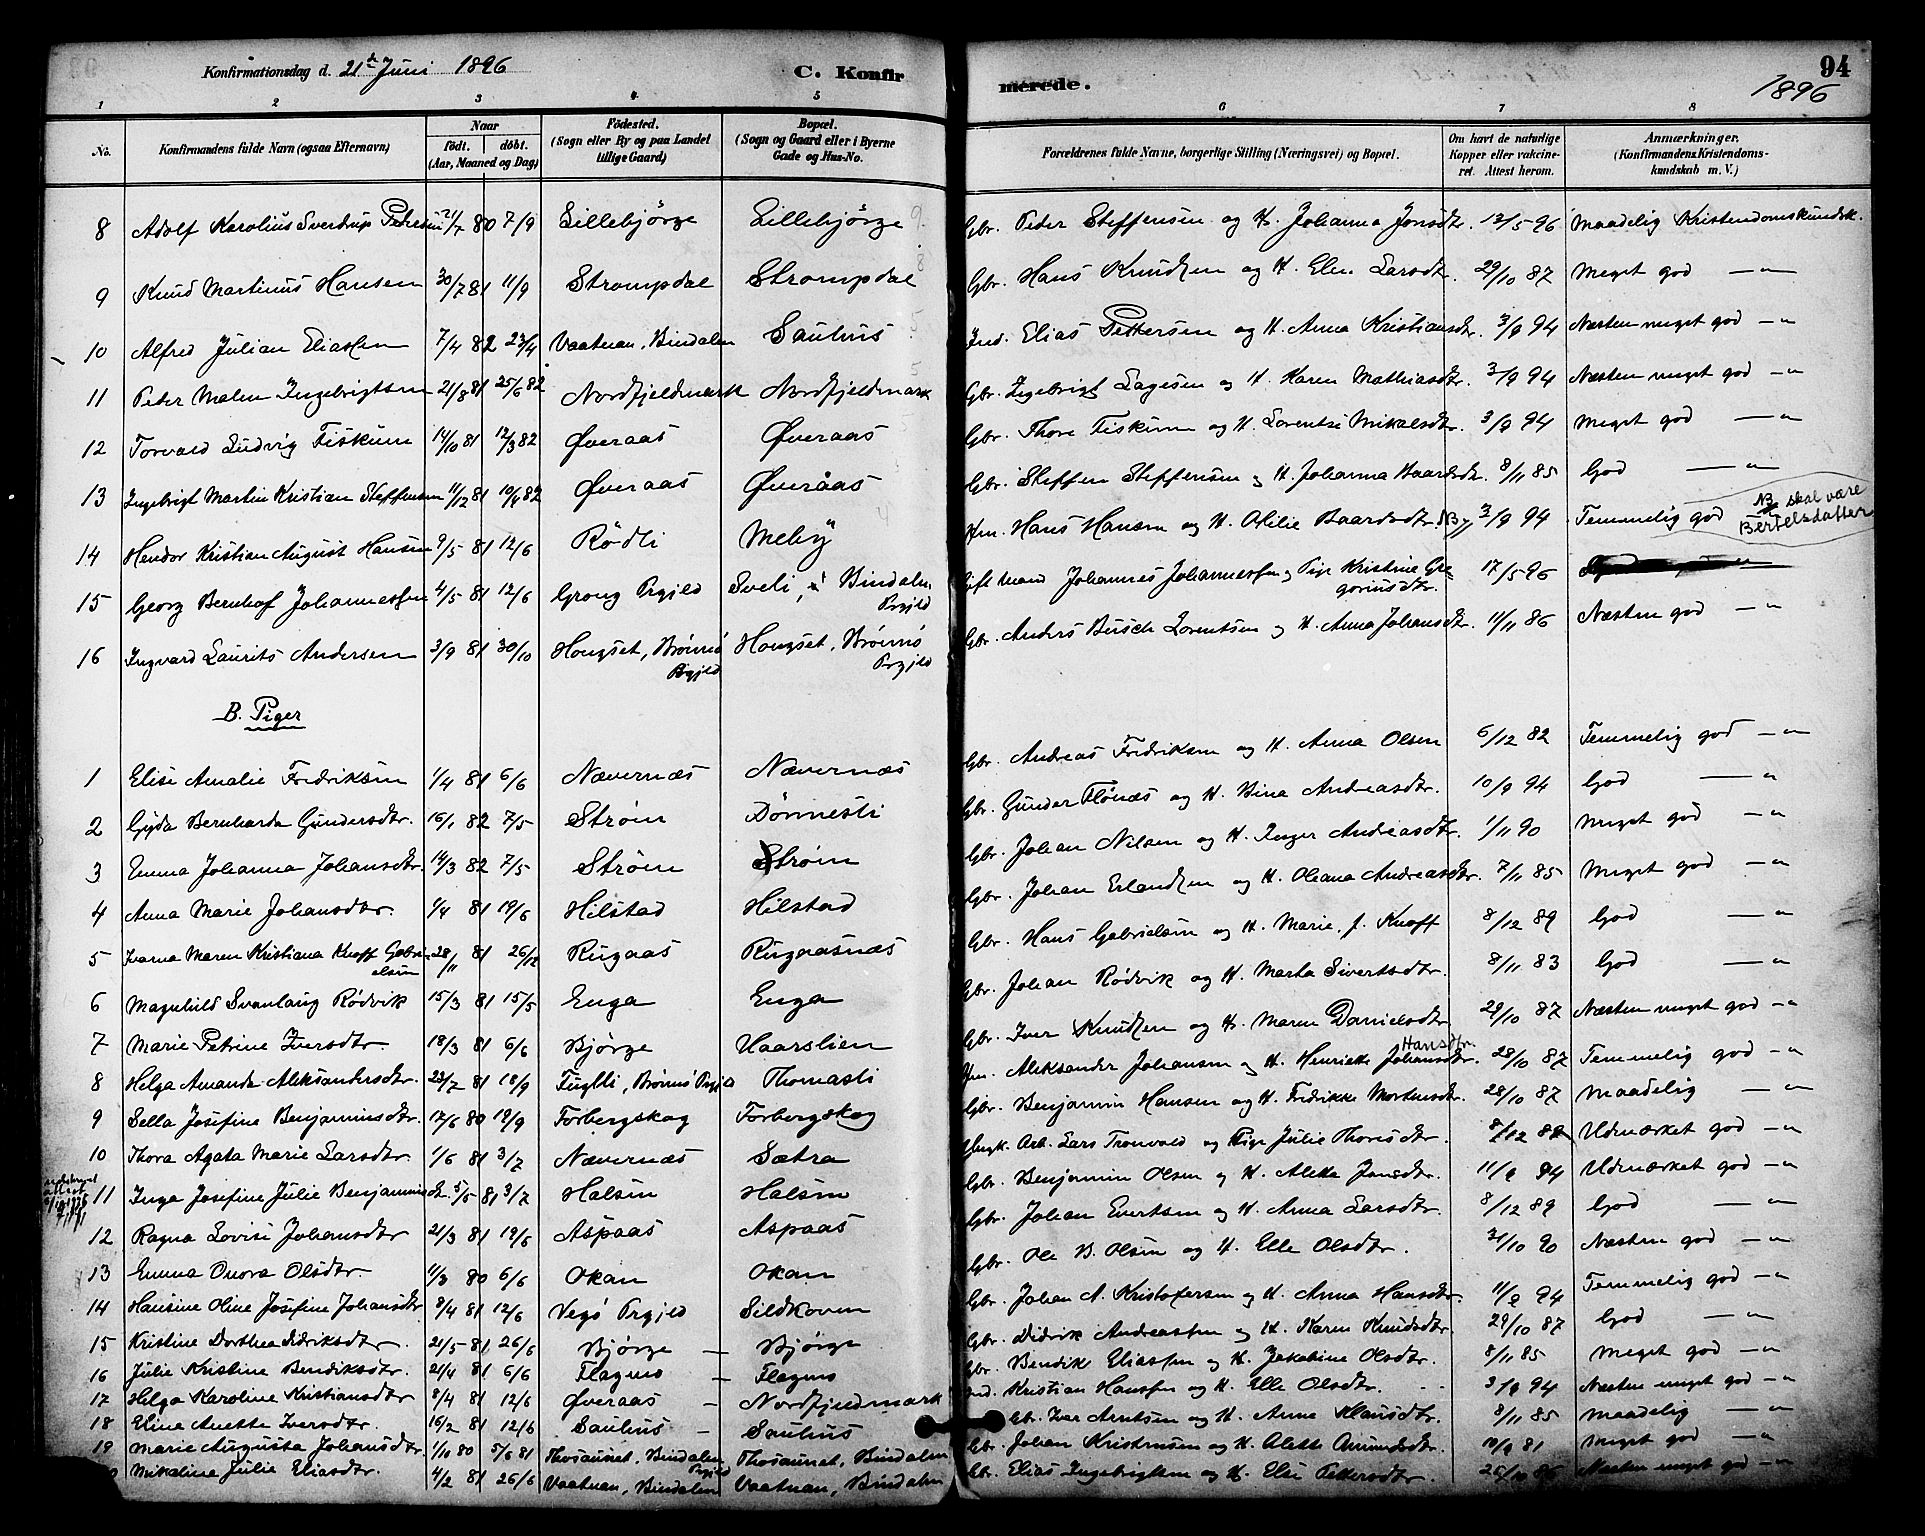 94
1896
Konfirmationsdag d. 21de Juni 1896 C. Konfirmerede.
1 2 3 4 5 6 7 8
No. Konfirmandens fulde Navn (ogsaa Efternavn) Naar födt. döbt. (Aar, Maaned og Dag) Födested. (Sogn eller By og paa Landet tillige Gaard) Bopæl. (Sogn og Gaard eller i Byerne Gade og Hus-No. Forældrenes fulde Navne, borgerlige Stilling (Næringsvei) og Bopæl. Om havt de naturlige Kopper eller vakcineret. Attest herom. Anmærkninger. (Konfirmandens Kristendomskundskab m. V.)
8 Adolf Karolius Sverdrup Petersen 21/7 80 7/9 Lillebjörge Lillebjörge Gbr. Peder Steffensen og H. Johanna Jonsdtr. 13/5 96 Maadelig Kristendomskundsk.
9 Knud Martinus Hansen 30/7 81 11/9 Strompdal Strompdal Gbr. Hans Knudsen og H. Elen Larsdtr. 29/10 87 Meget god — " —
10 Alfred Julian Eliassen 7/4 82 23/4 Vaatnan, Bindalen Saulhus Ind. Elias Pettersen og H. Anna Kristiansdtr. 3/9 94 Næsten meget god — " —
11 Peter Malen Ingebrigtsen 21/8 81 25/6 82 Nordfjeldmark Nordfjeldmark Gbr. Ingebrigt Lagesen og H. Karen Mathiasdtr. 3/9 94 Næsten meget god — " —
12 Torvald Ludvig Fiskum 14/10 81 12/3 82 Øveraas Øveraas Gbr. Thore Fiskum og H. Lorentse Mikalsdtr. 3/9 94 Meget god — " —
13 Ingebrigt Martin Kristian Steffensen 11/12 81 19/4 82 Øveraas Øveraas Gbr. Steffen Steffensen og H. Johanna Haardsdtr. 8/11 85 God — " —
14 Hendor Kristian August Hansen 9/5 81 12/6 Rödli Meby Hm. Hans Hansen og H. Otilie Baardsdtr. 3/9 94 Temmelig god NB skal være Bertelsdatter
15 Georg Bernhof Johannessen 4/5 81 12/6 Grong Prgjeld Sveli, i Bindalens Prgjeld Gift mand Johannes Johannessen og Pige Kristine Gregoriusdtr. 17/5 96
16 Ingvard Laurits Andersen 3/9 81 30/10 Hongset, Brönnö Prgjeld Hongset, Brönnö Prgjeld Gbr. Anders Busch Lorentsen og H. Anna Johansdtr. 11/11 86 Næsten god — " —
B. Piger
1 Elise Amalie Fredriksen 1/4 81 6/6 Nævernæs Nævernæs Gbr. Andreas Fredriksen og H. Anna Olsen 6/12 82 Temmelig god — " —
2 Gyda Bernharda Gundersdtr. 16/1 82 7/5 Ström Dönnesti Gbr. Gunder Flönæs og H. Bina Andreasdtr. 10/9 94 God — " —
3 Emma Johanna Johansdtr. 14/3 82 7/5 Ström Ström Gbr. Johan Nilsen og H. Inger Andreasdtr. 1/11 90 Meget god — " —
4 Anna Marie Johansdtr. 1/4 81 19/6 Hilstad Hilstad Gbr. Johan Erlandsen og H. Oleana Andreasdtr. 7/11 85 Meget god — " —
5 Ivarna Maren Kristiana Knoff Gabrielsen 28/11 81 26/12 Rugaas Rugaasnæs Gbr. Hans Gabrielsen og H. Marie, f. Knoff 8/12 89 God — " —
6 Magnhild Svanlaug Rödvik 15/3 81 15/5 Enga Enga Gbr. Johan Rödvik og H. Marta Sivertsdtr. 8/11 83 God — " —
7 Marie Petrine Iversdtr. 18/3 81 6/6 Bjørge Haarslien Gbr. Iver Knudsen og H. Maren Danielsdtr 29/10 87 Næsten meget god — " —
8 Helga Amanda Aleksandersdtr. 23/7 81 18/9 Fuglli, Brönnö Prgjeld Thomasli Hm. Aleksander Johansen og H. Henriette Johansdtr. Hansdtr. 28/10 87 Temmelig god — " —
9 Sella Josefine Benjaminsdtr. 17/6 80 19/9 Forbergskog Forbergskog Gbr. Benjamin Hansen og H. Fredrikke Mortensdtr. 28/10 87 Maadelig — " —
10 Thora Agata Marie Larsdtr. 1/6 81 3/7 Nævernæs Sætra Ungk. Arb. Lars Tronvold og Pige Julie Thorisdtr. 8/12 82 Udmærket god — " —
11 Inga Josefine Julie Benjaminsdtr. 5/5 81 3/7 Halsen Halsen Gbr. Benjamin Olsen og H. Aletta Jonsdtr. 11/9 94 Udmærket god — " —
12 Ragna Lovise Johansdtr 21/3 81 19/6 Aspaas Aspaas Gbr. Johan Evertsen og H. Anna Larsdtr. 8/12 89 God — " —
13 Emma Onora Olsdtr. 11/3 80 6/6 Okan Okan Gbr. Ole B. Olsen og H. Elle Olsdtr. 31/10 90 Næsten god — " —
14 Hansine Oline Josefine Johansdtr 8/4 81 12/6 Vegö Prgjeld Sildkoven Gbr. Johan A. Kristofersen og H. Anna Hansdtr. 11/9 94 Temmelig god — " —
15 Kristine Dorthea Didriksdtr. 21/5 81 26/6 Bjørge — Bjørge Gbr. Didrik Andreassen og H. Karen Knudsdtr. 29/10 87 God — " —
16 Julie Kristine Bendiksdtr. 21/4 81 6/6 Flagmo — Flagmo Gbr. Bendik Eliassen og H. Jakobine Olsdtr. 8/11 85 Meget god — " —
17 Helga Karoline Kristiansdtr 8/4 81 12/6 Øveraas — Nordfjeldmark Ind. Kristian Hanssen og H. Elle Olsdtr. 3/9 94 Næsten meget god — " —
18 Eline Anette Iversdtr. 16/2 81 12/6 Saulhus — Saulhus Gbr. Iver Arntsen og H. Anne Klausdtr. 8/11 85 Maadelig — " —
19 Marie Augusta Johansdtr. 1/11 80 5/6 81 Thosaunet, Bindalen Prgjeld Thosaunet, Bindalen Gbr. Johan Kristensen og H. Alette Amundsdtr. 10/9 81 Meget god — " —
Mikaline Julie Eliasdtr. 4/2 81 26/6 Vaatnan, Bindalen Vaatnan, Bindalen Gbr. Elias Ingebrigtsen og H. Else Pettersdtr. 25/10 86 Næsten meget god — " —